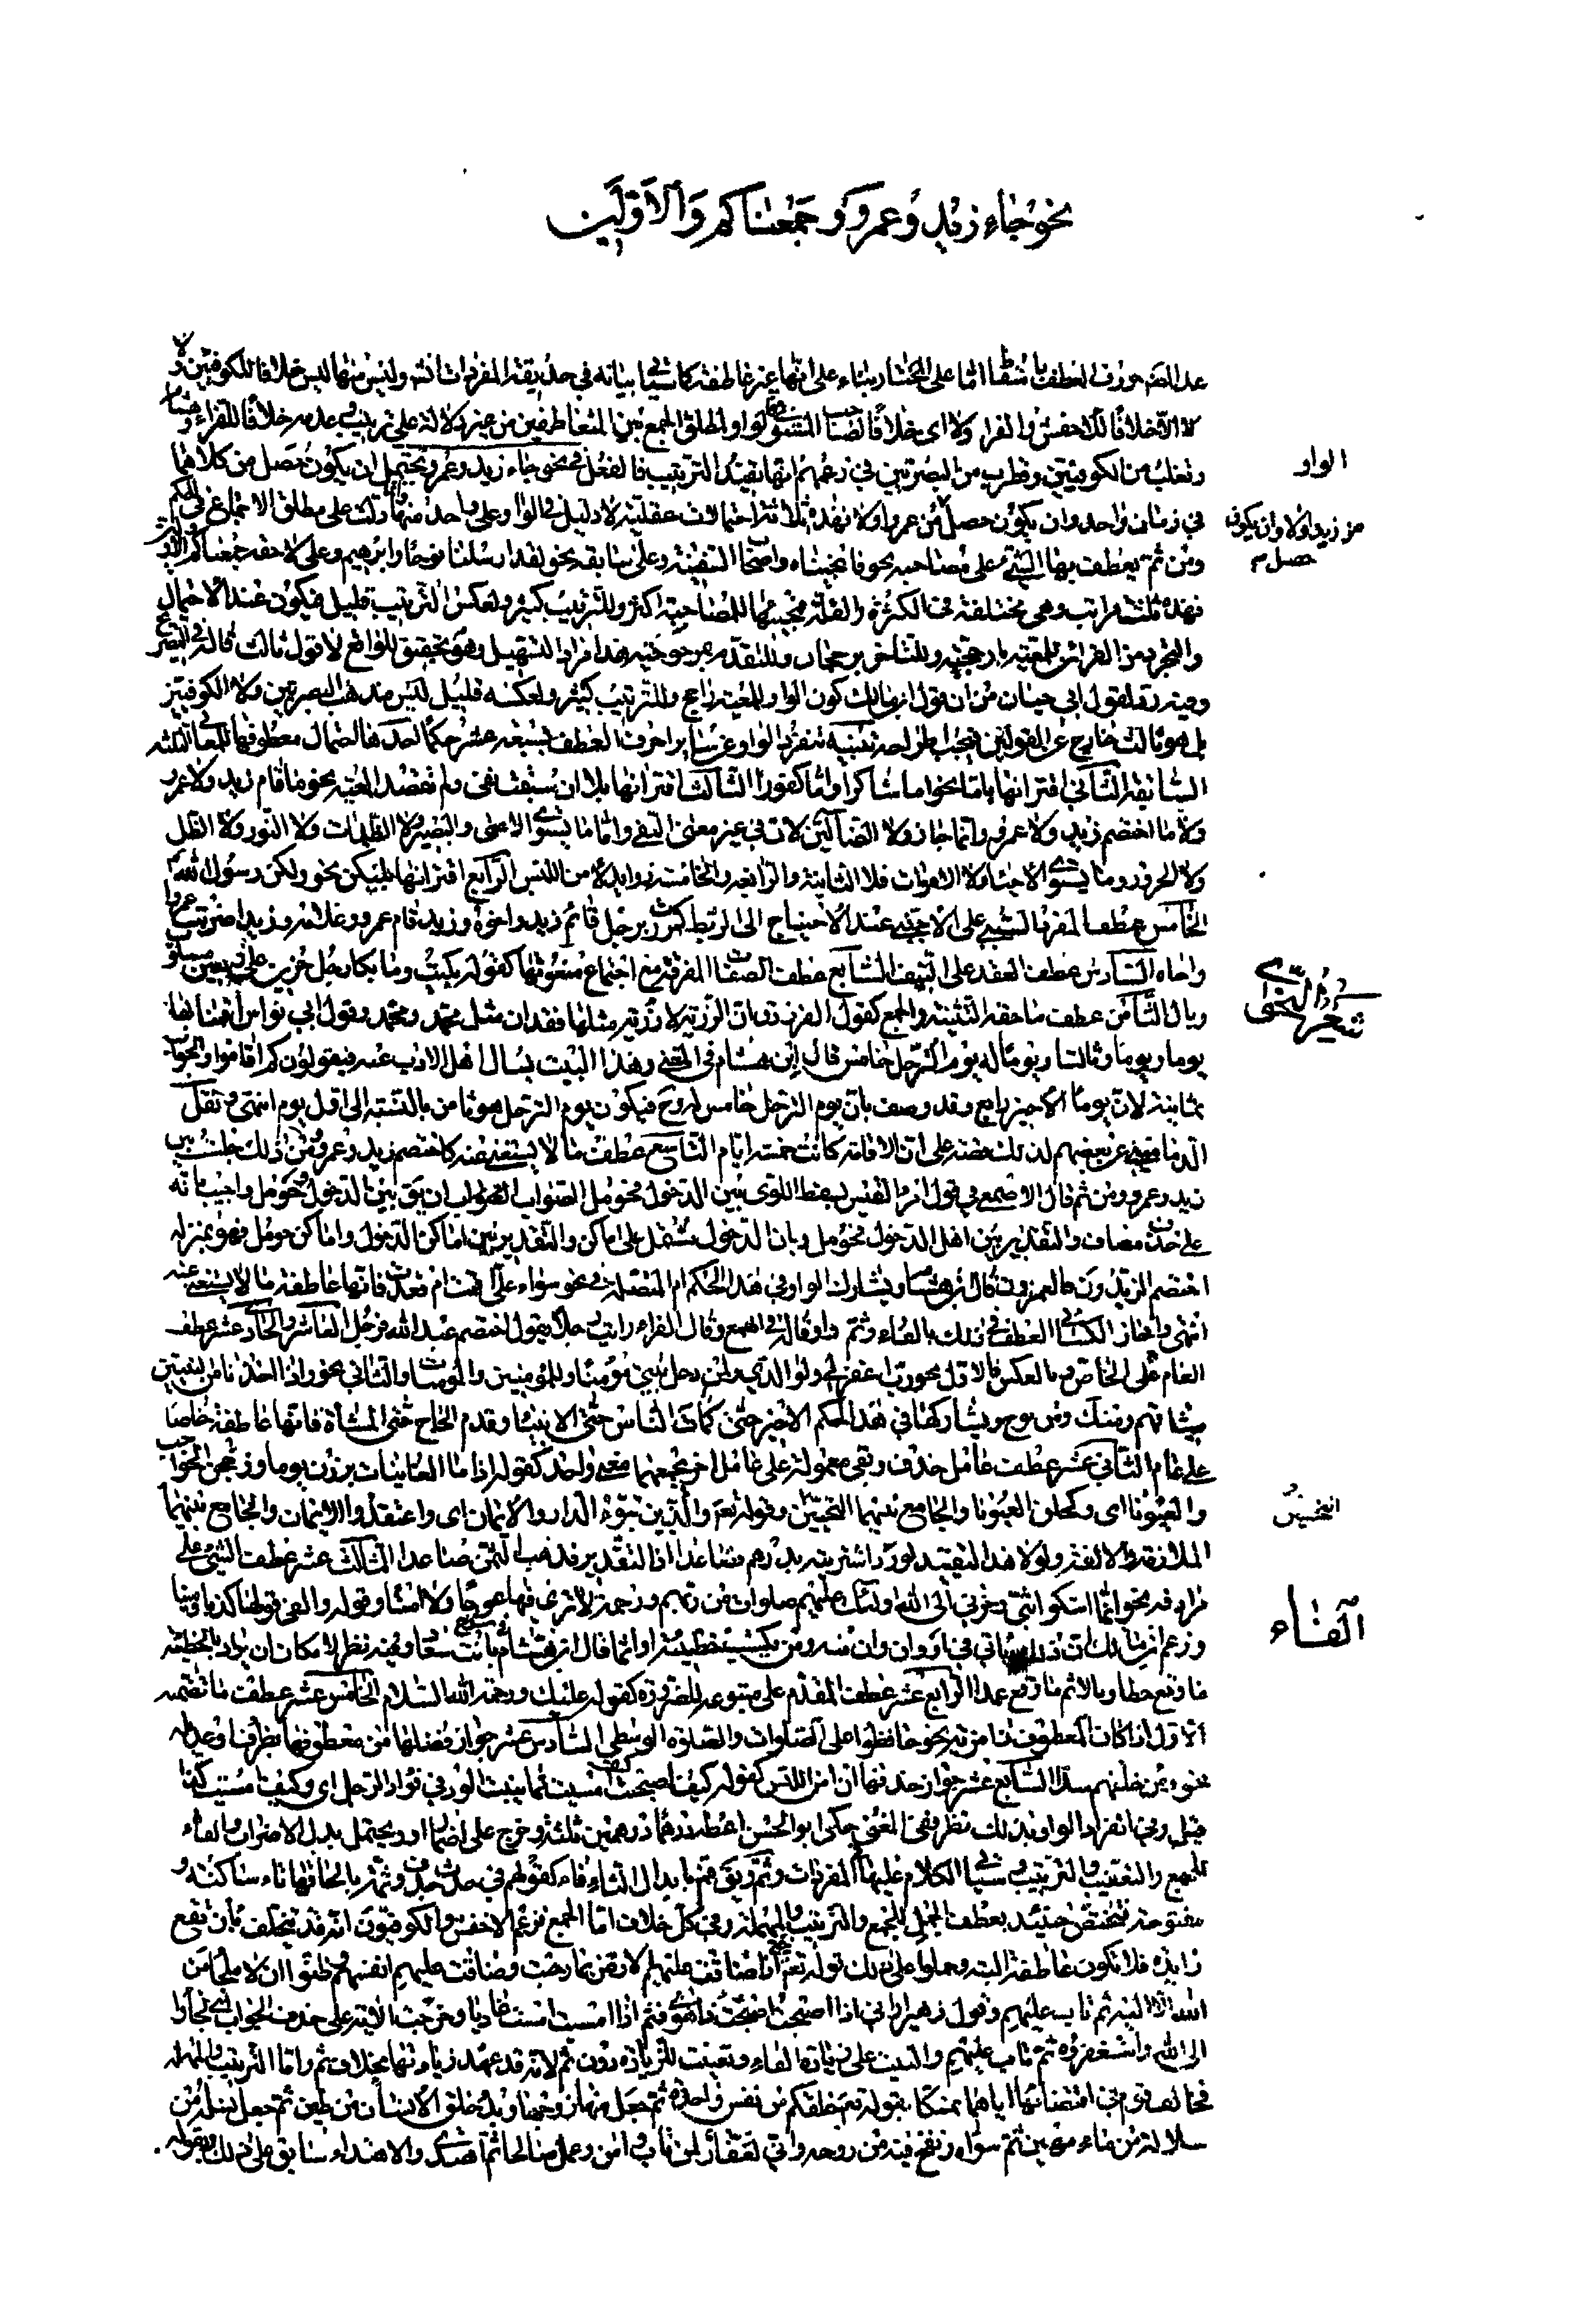 نحو جاء زيد وعمرو وجمعناكم والاولين
حروف العطف باسقاط اما على المختار بناء على انها غير عاطفة كما سيأتي بيانه في حديقة المفردات انته وليس منها ليس خلافا للكوفيين ولا
الا خلافا للاخفش والفراء ولا اى خلافا لصاحب فالواو لمطلق الجمع بين المتعاطفين من غير دلالة على ترتيب وعدمه خلافا للفراء وهشام
وثعلب من الكوفيين وقطرب من البصريين في زعمهم انها تفيد الترتيب فالفعل في نحو جاء زيد وعمرو يحتمل ان يكون حصل من كلاهما
الواو
في زمان واحد وان يكون حصل من عمرو اولا فهذه ثلاثة احتمالات عقلية لا دليل في الواو على واحد منها دلت على مطلق الاجتماع في الحكم
من زيد اولا وان يكون
حصل م
ومن ثم يعطف بها الشيء على مصاحبه نحو فانجيناه واصحاب السفينة وعلى سابقه نحو لقد ارسلنا نوحا وابرهيم وعلى لاحقه جمعناكم
فهذه ثلث مراتب وهي مختلفة في الكثرة والقلة فمجيئها للمصاحبة اكثر وللترتيب كثير ولعكس الترتيب قليل فيكون عند الاحتمال
والتجرد من القرائن للمعية بارجحية وللتأخر برجحان وللتقدم بمرجوحية هذا مراد التسهيل وهو تحقيق للواقع لا قول ثالث
وفيه رد لقول ابي حيان من ان قول ابن مالك كون الواو للمعية راجح وللترتيب كثير ولعكسه قليل ليس مذهب البصريين ولا الكوفيين
بل هو ثالث خارج عن القولين فيجب اطراحه تنبيه تنفرد الواو عن سائر احرف العطف بسبعة عشر حكما احدها احتمال معطوفها للمعاني الثلثة
السابقة الثاني اقترانها باما نحو اما شاكرا واما كفورا الثالث اقترانها بلا ان سبقت بنفى ولم تقصد المعية نحو ما قام زيد ولا عمرو
ولا ما اختصم زيد ولا عمرو وانما جاز ولا الضالين لان في غير معنى النفي واما ما يستوى الاعمى والبصير ولا الظلمات ولا النور ولا الظل
ولا الحرور وما يستوى الاحياء ولا الاموات فلا الثانية والرابعة والخامسة زوايد لامن اللبس الرابع اقترانها بلكن نحو ولكن رسول الله
الخامس عطف المفرد السببي على الاجنبي عند الاحتياج الى الربط كمررت برجل قائم زيد واخوه وزيد قام عمرو وغلامه وزيد اضربت عمروا
واخاه السادس عطف العقد على النيف السابع عطف الصفات المفرقة مع اجتماع منعوتها كقوله بكيت وما بكا رجل حزين على ربعين مسلوب
وبال الثامن عطف ما حقه التثنية والجمع كقول الفرزدق ان الرزية لا رزية مثلها فقدان مثل محمد ومحمد وقول ابي نواس اقمنا بها
يوما ويوما وثالثا ويوما له يوم الترحل خامس قال ابن هشام في المغني وهذا البيت يسأل اهل الادب عنه فيقولون كم اقاموا والجواب
ثمانية لان يوما الاخير رابع وقد وصف بان يوم الترحل خامس له وح فيكون يوم الترحل هو ثامن بالنسبة الى اول يوم انتهى ونقل
الدماميني عن بعضهم ان الاقامة كانت خمسة ايام التاسع عطف ما لا يستغنى عنه كاختصم زيد وعمرو ومن ذلك جلست بين
زيد وعمرو ومن ثم قال الاصمعي في قول امرء القيس بسقط اللوى بين الدخول فحومل الصواب ان يق بين الدخول وحومل واجيب بانه
على حذف مضاف والتقدير بين اهل الدخول فحومل وبان الدخول مشتمل على اماكن والتقدير بين اماكن الدخول واماكن حومل فهو بمنزلة
اختصم الزيدون فالعمرون قال ابن هشام ويشارك الواو في هذا الحكم ام المتصلة في نحو سواء على اقمت ام قعدت فانها عاطفة ما لا يستغنى عنه
انتهى واجاز الكسائي العطف في ذلك بالفاء وثم العاشر والحادي عشر عطف
العام على الخاص وبالعكس فالاول نحو رب اغفر لي ولوالدي ولمن دخل بيتي مؤمنا وللمؤمنين والمؤمنات والثاني نحو واذ اخذنا من النبيين
ميثاقهم ومنك ومن نوح ويشاركها في هذا الحكم الاخير حتى كمات الناس حتى الانبياء وقدم الحاج حتى المشاة فانها عاطفة خاصا
على عام الثاني عشر عطف عامل حذف وبقي معموله على عامل اخر يجمعهما معنى واحد كقوله اذا ما الغانيات برزن يوما وزججن الحواجب
والعيونا اى وكحلن العيونا والجامع بينهما التحسين وقوله تعم والذين تبوؤ الدار والايمان اى واعتقدوا الايمان والجامع بينهما
الملازمة والالفة ولولا هذا التقييد لورد اشتريته بدرهم فصاعدا اذ التقدير فذهب الثمن صاعدا الثالث عشر عطف الشيء على
مرادفه نحو انما اشكو بثي وحزني الى الله اولئك عليهم صلوات من ربهم ورحمة لا ترى فيها عوجا ولا امتا وقوله والفى قولها كذبا ومينا
الفاء
ما وقع خطأ وبالاثم ما وقع عمدا الرابع عشر عطف المقدم على متبوعه للضرورة كقوله عليك ورحمة الله السلام الخامس عشر عطف ما تضمنه
الاول اذا كان المعطوف ذا مزية نحو حافظوا على الصلوات والصلوة الوسطى السادس عشر جواز فصلها من معطوفها بظرف او عديله
نحو ومن خلفهم سدا السابع عشر جواز حذفها ان امن اللبس كقوله كيف اصبحت كيف امسيت مما يثبت الود في فؤاد الرجل اى وكيف امسيت كذا
قيل وفي انفراد الواو بذلك نظر ففي المغني حكى ابو الحسن اعطه درهما درهمين ثلثة وخرج على اضمار او ويحتمل بدل الاضراب والفاء
للجمع والتعقيب والترتيب وسيأتي الكلام عليها في المفردات وثم ويق فم بابدال الثاء فاء كقولهم في جدث جدف وثمت بالحاقها تاء ساكنة و
مفتوحة فتختص حينئذ بعطف الجمل للجمع والترتيب والمهلة وفي كل خلاف اما الجمع فزعم الاخفش والكوفيون انه قد يتخلف بان تقع
زايدة فلا تكون عاطفة البتة وحملوا على ذلك قوله تعم حتى اذا ضاقت عليهم الارض بما رحبت وضاقت عليهم انفسهم وظنوا ان لا ملجأ من
الله الا اليه ثم تاب عليهم وقول زهير اراني اذا اصبحت اصبحت ذا هوى فثم اذا امسيت امسيت غاديا وخرجت الاية على حذف الجواب اى لجأوا
الى الله واستغفروه ثم تاب عليهم والبيت على زيادة الفاء وتعينت للزيادة دون ثم لانه قد عهد زيادتها بخلاف ثم واما الترتيب والمهلة
فخالف قوم في اقتضائها اياهما تمسكا بقوله تعم خلقكم من نفس واحدة ثم جعل منها زوجها وبدأ خلق الانسان من طين ثم جعل نسله من
سلالة من ماء مهين ثم سواه ونفخ فيه من روحه واني لغفار لمن تاب وامن وعمل صالحا ثم اهتدى والاهتداء سابق على ذلك وبقوله